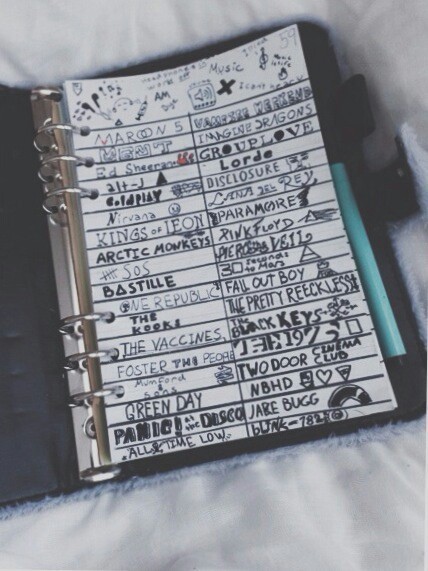 59
Music
AM
MAROON 5
VAMPIRE WEEKEND
IMAGINE DRAGONS
Ed Sheeran
GROUPLOVE
alt-J
Lorde
Coldplay
DISCLOSURE
Nirvana
LANA DEL REY
KINGS OF LEON
PARAMORE
ARCTIC MONKEYS
PINK FLOYD
5SOS
PIERCE THE VEIL
BASTILLE
30 seconds to Mars
ONE REPUBLIC
FALL OUT BOY
THE KOOKS
THE PRETTY RECKLESS
THE VACCINES
BLACK KEYS
FOSTER THE PEOPLE
THE 1975
Mumford & sons
TWO DOOR CINEMA CLUB
GREEN DAY
NBHD
PANIC! at the DISCO
JAKE BUGG
ALL TIME LOW
blink-182